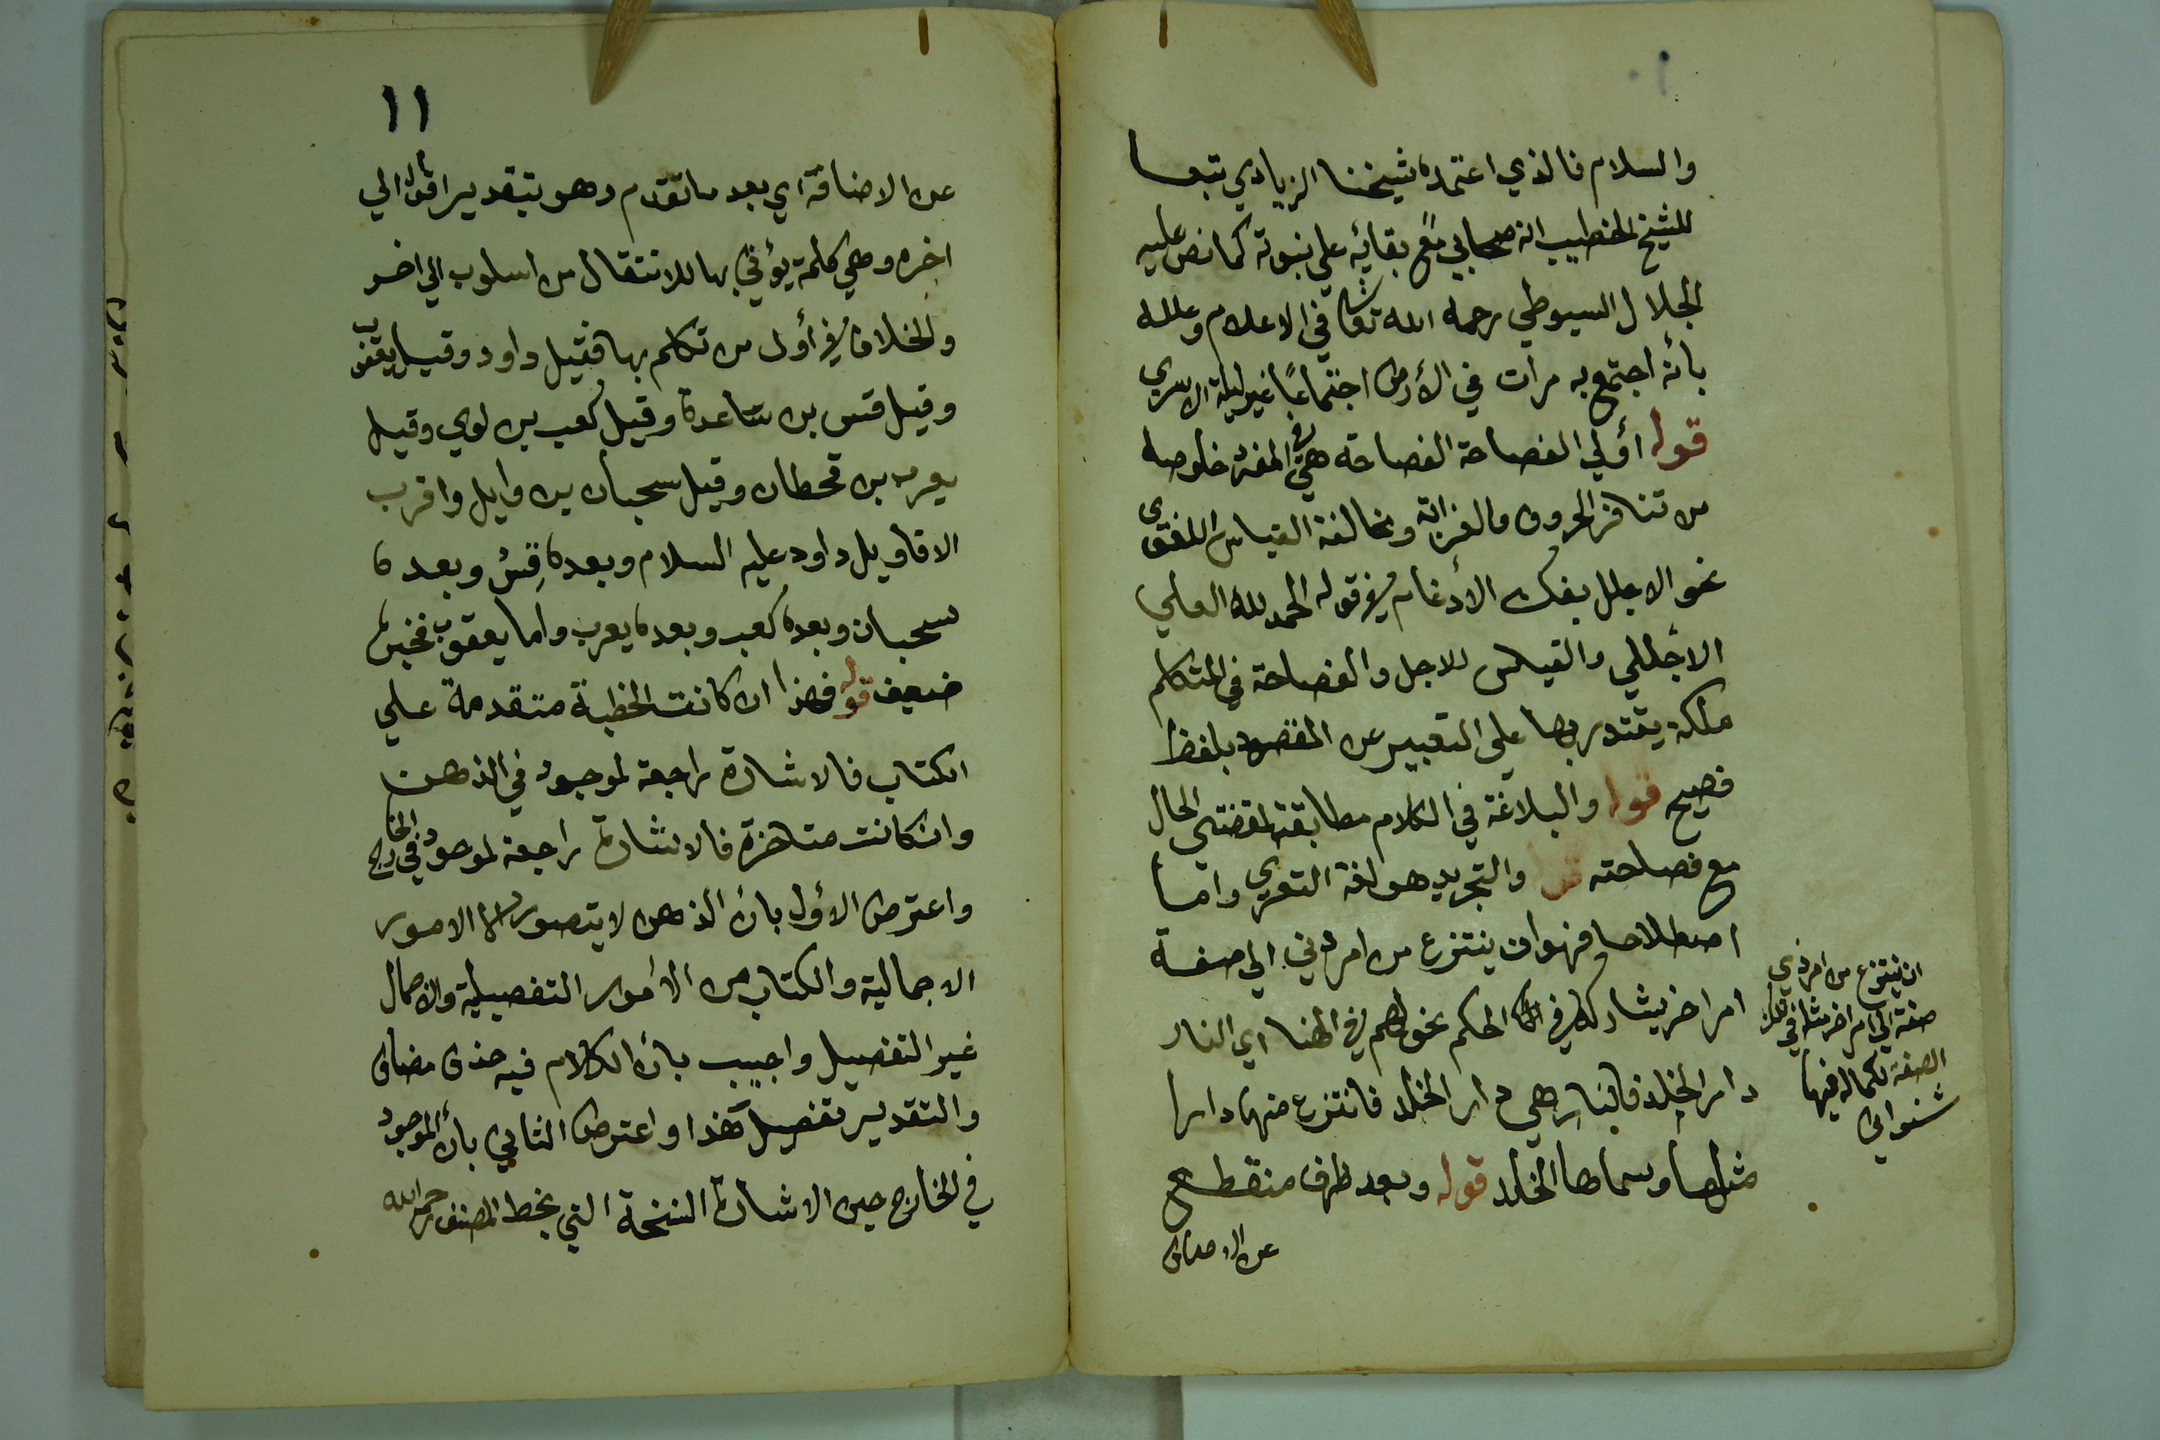 والسلام فالذي اعتمده شيخنا الزيادي تبعا
للشيخ الخطيب انه صحابي مع بقائه علي نبوته كما نص عليه
الجلال السيوطي رحمه الله تعالى في الاعلام وعلله
بأنه اجتمع به مرات في الأرض اجتماعًا غير ليلة الاسري
قوله أولي الفصاحة الفصاحة هي في المفرد خلوصه
من تنافر الحروف والغرابة ومخالفة القياس اللغوي
نحو الاجلل بفك الأدغام في قوله الحمد لله العلي
الاجللي والقياس الاجل والفصاحة في المتكلم
ملكة يقتدر بها علي التعبير عن المقصود بلفظ
فصيح قوله والبلاغة في الكلام مطابقته لمقتضي الحال
مع فصاحته قوله والتجريد هو لغة التعري واما
اصطلاحا فهو ان ينتزع من امر ذي الي صفة
امر اخر يشاركه في الحكم نحو لهم في الهنا اي النار
دار الخلد فالنار هي دار الخلد فانتزع منها دارا
مثلها وسماها الخلد قوله وبعد ظرف منقطع
عن الاضافة
ان ينتزع من امر ذي
صفة الي امر اخر مثله في تلك
الصفة لكماله فيها
شنواني
١١
عن الاضافة اي بعد ما تقدم وهو بتقدير اقول الي
اخره وهي كلمة يؤتي بها للانتقال من اسلوب الي اخر
والخلاف في أول من تكلم بها فقيل داود وقيل يعقوب
وقيل قس بن ساعدة وقيل كعب بن لوي وقيل
يعرب بن قحطان وقيل سحبان بن وايل واقرب
الاقاويل داود عليه السلام وبعده قس وبعده
سحبان وبعده كعب وبعده يعرب واما يعقوب فخبره
ضعيف قوله فهذا ان كانت الخطبة متقدمة علي
الكتاب فالاشارة راجعة لموجود في الذهن
وان كانت متاخرة فالاشارة راجعة لموجود في الخارج
واعترض الاول بان الذهن لا يتصور الا الامور
الاجمالية والكتاب من الامور التفصيلية والاجمال
غير التفصيل واجيب بان الكلام فيه حذف مضاف
والتقدير تفصيل هذا واعترض الثاني بأن الموجود
في الخارج حين الاشارة النسخة التي بخط المصنف رحمه الله